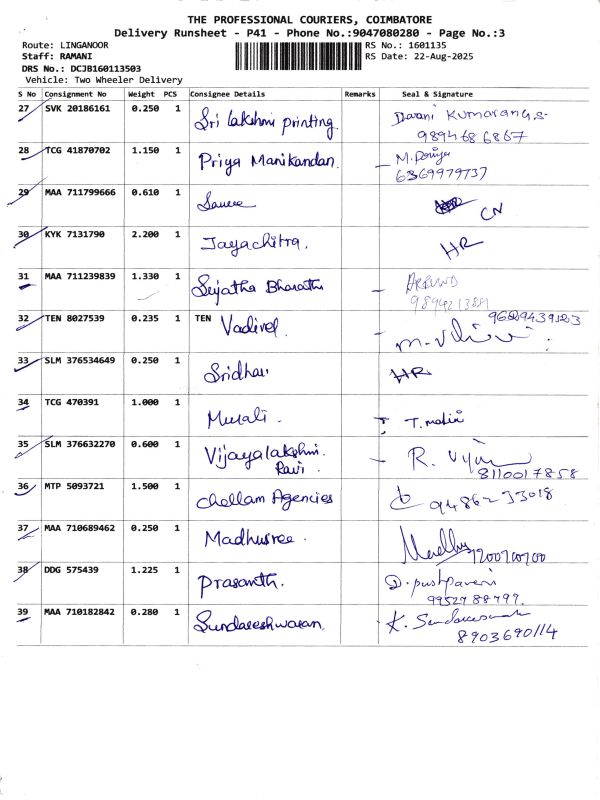 THE PROFESSIONAL COURIERS, COIMBATORE
Delivery Runsheet - P41 - Phone No.:9047080280 - Page No.:3
Route: LINGANOOR
Staff: RAMANI
DRS No.: DCJB160113503
Vehicle: Two Wheeler Delivery
RS No.: 1601135
RS Date: 22-Aug-2025
S No Consignment No Weight PCS Consignee Details Remarks Seal & Signature
27 SVK 20186161 0.250 1 Sri lakshmi printing.
9894686867
28 TCG 41870702 1.150 1 Priya Manikandan. M. Priya
6369979737
29 MAA 711799666 0.610 1 CN
30 KYK 7131790 2.200 1 Jayachitra. HR
31 MAA 711239839 1.330 1 Sujatha Bharathi
32 TEN 8027539 0.235 1 TEN Vadivel.
33 SLM 376534649 0.250 1 Sridhar HR
34 TCG 470391 1.000 1 Murali.
35 SLM 376632270 0.600 1 Vijayalakshmi
Ravi.
8110017858
36 MTP 5093721 1.500 1 Chellam Agencies
37 MAA 710689462 0.250 1 Madhusree.
38 DDG 575439 1.225 1 Prasanth.
39 MAA 710182842 0.280 1 Sundareshwaran.
8903690114